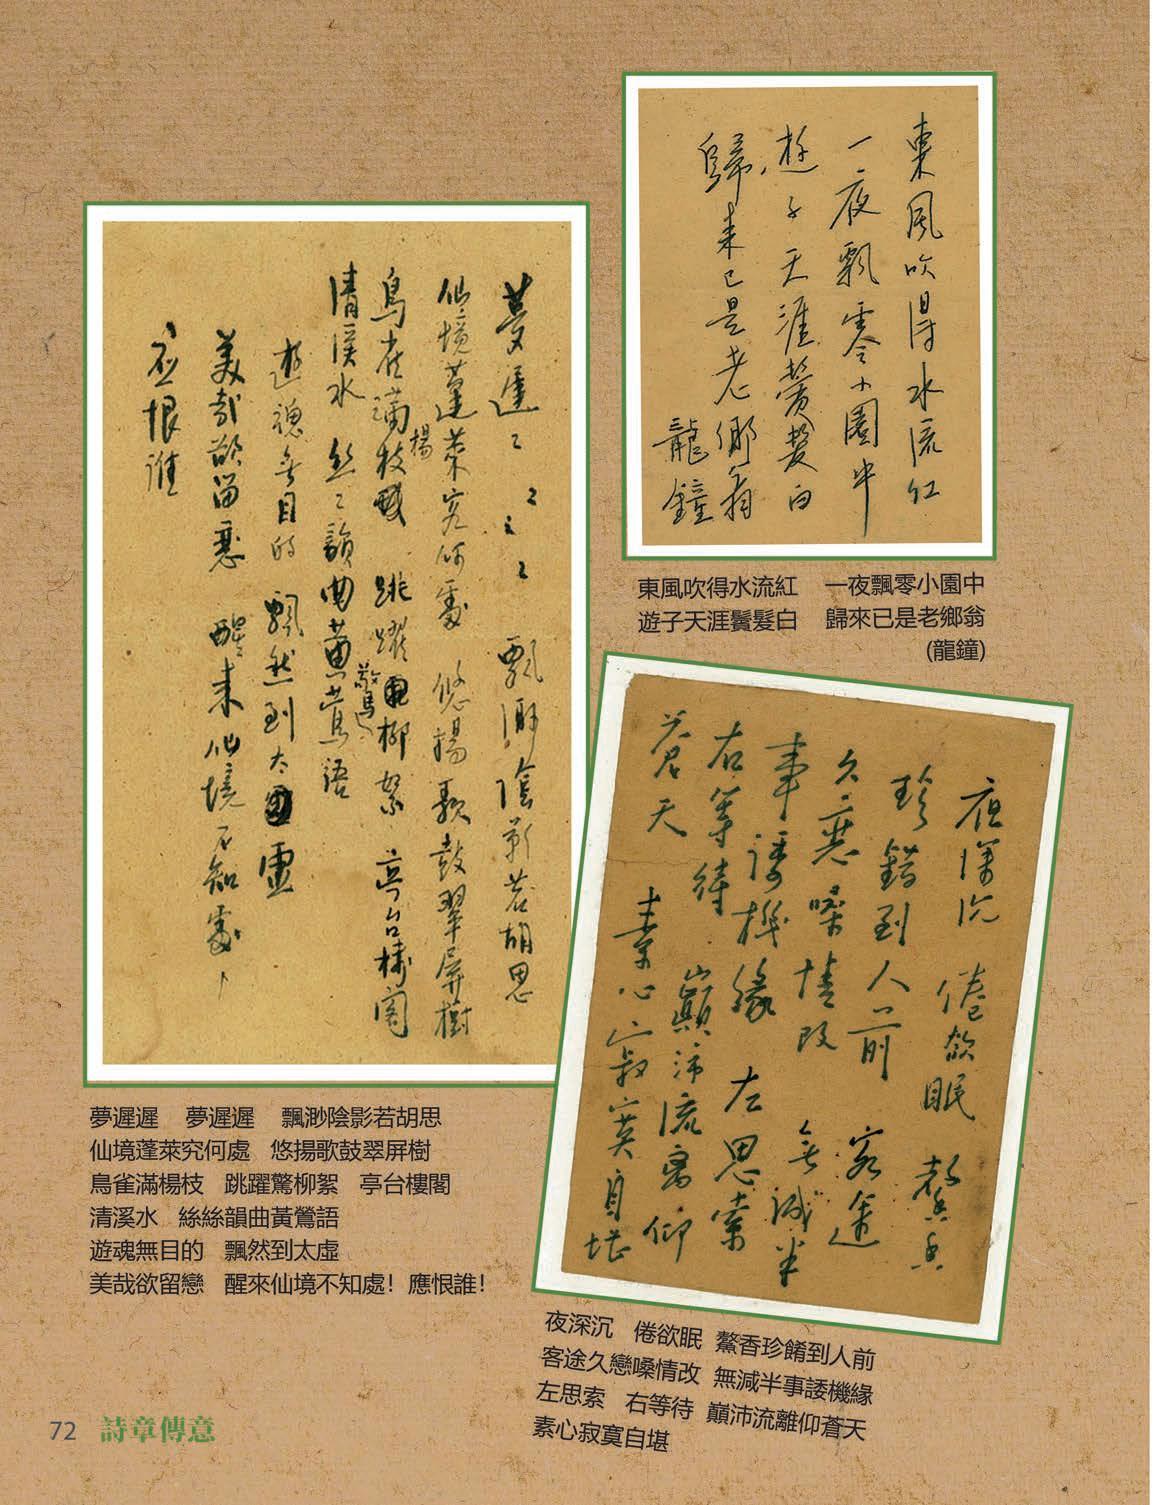 東風吹得水流紅
一夜飄零小園中
遊子天涯鬢髮白
歸來已是老鄉翁
龍鐘
東風吹得水流紅 一夜飄零小園中
遊子天涯鬢髮白 歸來已是老鄉翁
(龍鐘)
夢遲〻 〻〻〻 飄渺陰影若胡思
仙境蓬萊究何處 悠揚歌鼓翠屏樹
鳥雀滿楊枝 跳躍驚柳絮 亭台樓閣
清溪水 絲〻韻曲黃鶯語
遊魂無目的 飄然到太虛
美哉欲留戀 醒來仙境不知處
應恨誰
夢遲遲 夢遲遲 飄渺陰影若胡思
仙境蓬萊究何處 悠揚歌鼓翠屏樹
鳥雀滿楊枝 跳躍驚柳絮 亭台樓閣
清溪水 絲絲韻曲黃鶯語
遊魂無目的 飄然到太虛
美哉欲留戀 醒來仙境不知處！應恨誰！
夜深沉 倦欲眠 香
珍錯到人前 客途
久戀嗓情改 無減半
事諉機緣 左思索
右等待 巔沛流離仰
蒼天 素心寂寞自堪
夜深沉 倦欲眠 鰲香珍餚到人前
客途久戀嗓情改 無減半事諉機緣
左思索 右等待 巔沛流離仰蒼天
素心寂寞自堪
72 詩章傳意